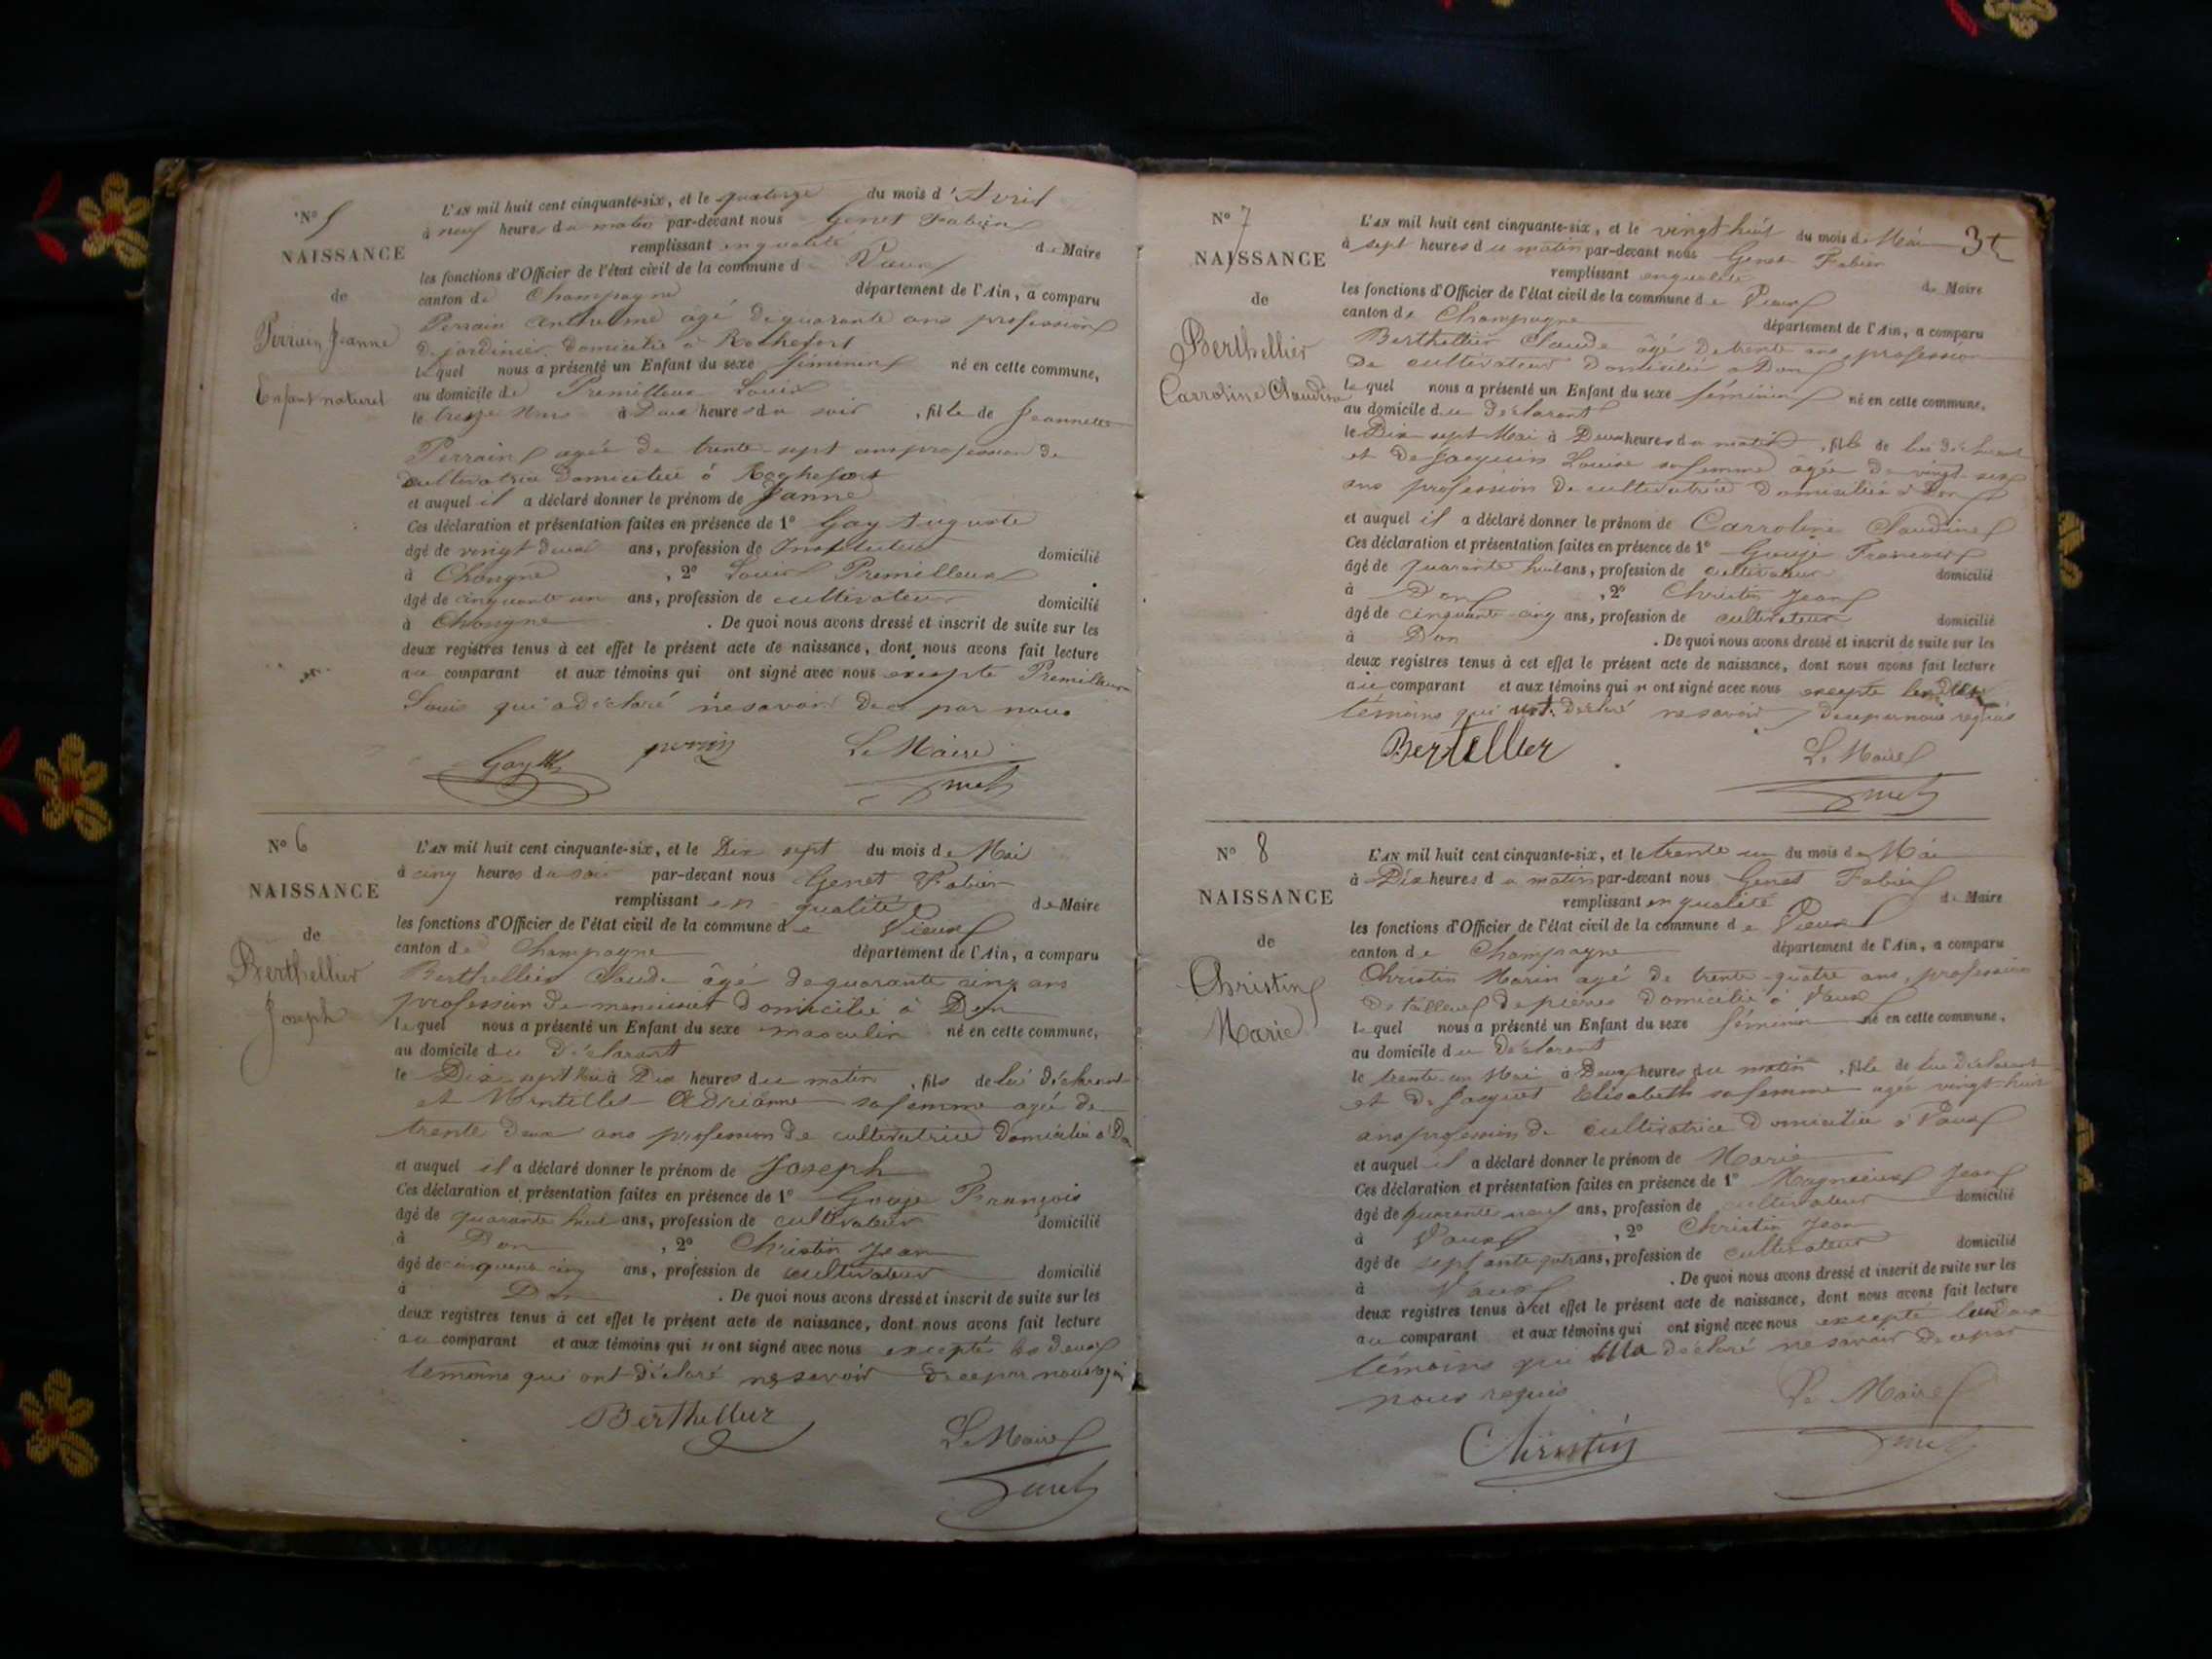 N° 5
NAISSANCE
de
Perrain Jeanne
Enfant naturel
L'AN mil huit cent cinquante-six, et le quatorze du mois d'Avril
à neuf heures du matin par-devant nous Genet Fabien
remplissant en qualité de Maire
les fonctions d'Officier de l'état civil de la commune de Vieux
canton de Champagne département de l'Ain, a comparu
Perrain Anthelme agé de quarante ans profession
de jardinier domicilié à Rothefort
lequel nous a présenté un Enfant du sexe féminin né en cette commune,
au domicile de Premilleux Louis
le treize à Deux heures du soir, fille de Jeannette
Perrain agée de trente-sept ans profession de
cultivatrice Domiciliée à
et auquel il a déclaré donner le prénom de Janne
Ces déclaration et présentation faites en présence de 1° Gay Auguste
âgé de vingt deux ans, profession de Instituteur domicilié
à Chongne, 2° Louis Premilleux
âgé de cinquante un ans, profession de cultivateur domicilié
à Chongne. De quoi nous avons dressé et inscrit de suite sur les
deux registres tenus à cet effet le présent acte de naissance, dont nous avons fait lecture
au comparant et aux témoins qui ont signé avec nous excepté Premilleux
Louis qui a déclaré ne savoir de ce par nous
Gay perrin Le Maire
Genet
N° 6
NAISSANCE
de
Berthellier
Joseph
L'AN mil huit cent cinquante-six, et le Dix sept du mois de Mai
à cinq heures du soir par-devant nous Genet Fabien
remplissant en qualité de Maire
les fonctions d'Officier de l'état civil de la commune de Vieux
canton de Champagne département de l'Ain, a comparu
Berthellier Claude âgé de quarante cinq ans
profession de menuisier domicilié à Don
lequel nous a présenté un Enfant du sexe masculin né en cette commune,
au domicile du Déclarant
le Dix-sept Mai à Dix heures du matin, fils de lui déclarant
et Adrianne sa femme agée de
trente deux ans profession de cultivatrice Domiciliée à Don
et auquel il a déclaré donner le prénom de Joseph
Ces déclaration et présentation faites en présence de 1° Gouje François
âgé de quarante huit ans, profession de cultivateur domicilié
à Don, 2° Christin Jean
âgé de cinquante cinq ans, profession de cultivateur domicilié
à Don. De quoi nous avons dressé et inscrit de suite sur les
deux registres tenus à cet effet le présent acte de naissance, dont nous avons fait lecture
au comparant et aux témoins qui n ont signé avec nous excepté les deux
témoins qui ont déclaré ne savoir de ce par nous requis
Berthellier
Le Maire
Genet
N° 7
NAISSANCE
de
Berthellier
Carroline Claudine
L'AN mil huit cent cinquante-six, et le vingt huit du mois de Mai
à sept heures du matin par-devant nous Genet Fabien
remplissant en qualité de Maire
les fonctions d'Officier de l'état civil de la commune de Vieux
canton de Champagne département de l'Ain, a comparu
Berthellier Claude âgé de trente ans profession
de cultivateur domicilié a Don
lequel nous a présenté un Enfant du sexe féminin né en cette commune,
au domicile du déclarant
le Dix sept Mai à Deux heures du matin, fille de lui déclarant
et de Jacquin Louise sa femme âgée de vingt-six
ans profession de cultivatrice Domiciliée à Don
et auquel il a déclaré donner le prénom de Carroline Claudine
Ces déclaration et présentation faites en présence de 1° Gouje François
âgé de quarante huit ans, profession de cultivateur domicilié
à Don, 2° Christin Jean
âgé de cinquante-cinq ans, profession de cultivateur domicilié
à Don. De quoi nous avons dressé et inscrit de suite sur les
deux registres tenus à cet effet le présent acte de naissance, dont nous avons fait lecture
au comparant et aux témoins qui n ont signé avec nous excepté les deux
témoins qui ont déclaré ne savoir de ce par nous requis
Bertellier
Le Maire
Genet
N° 8
NAISSANCE
de
Christin
Marie
L'AN mil huit cent cinquante-six, et le trente un du mois de Mai
à Dix heures du matin par-devant nous Genet Fabien
remplissant en qualité de Maire
les fonctions d'Officier de l'état civil de la commune de Vieux
canton de Champagne département de l'Ain, a comparu
Christin Marin agé de trente-quatre ans, profession
de tailleur de pierres domicilié à Vaux
lequel nous a présenté un Enfant du sexe féminin né en cette commune,
au domicile du Déclarant
le trente-un Mai à Deux heures du matin, fille de lui déclarant
et de Jacquet Elisabeth sa femme agée vingt-huit
ans profession de cultivatrice Domiciliée à Vaux
et auquel il a déclaré donner le prénom de Marie
Ces déclaration et présentation faites en présence de 1° Magnieux Jean
âgé de quarante neuf ans, profession de cultivateur domicilié
à Vaux, 2° Christin Jean
âgé de ans, profession de cultivateur domicilié
à Vaux. De quoi nous avons dressé et inscrit de suite sur les
deux registres tenus à cet effet le présent acte de naissance, dont nous avons fait lecture
au comparant et aux témoins qui ont signé avec nous excepté deux
témoins qui déclaré ne savoir de ce par
nous requis
Le Maire
Christin
Genet